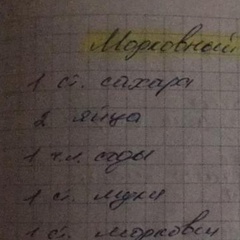 Морковный
1 ст. сахара
2 яйца
1 ч.л. соды
1 ст. муки
1 ст. моркови